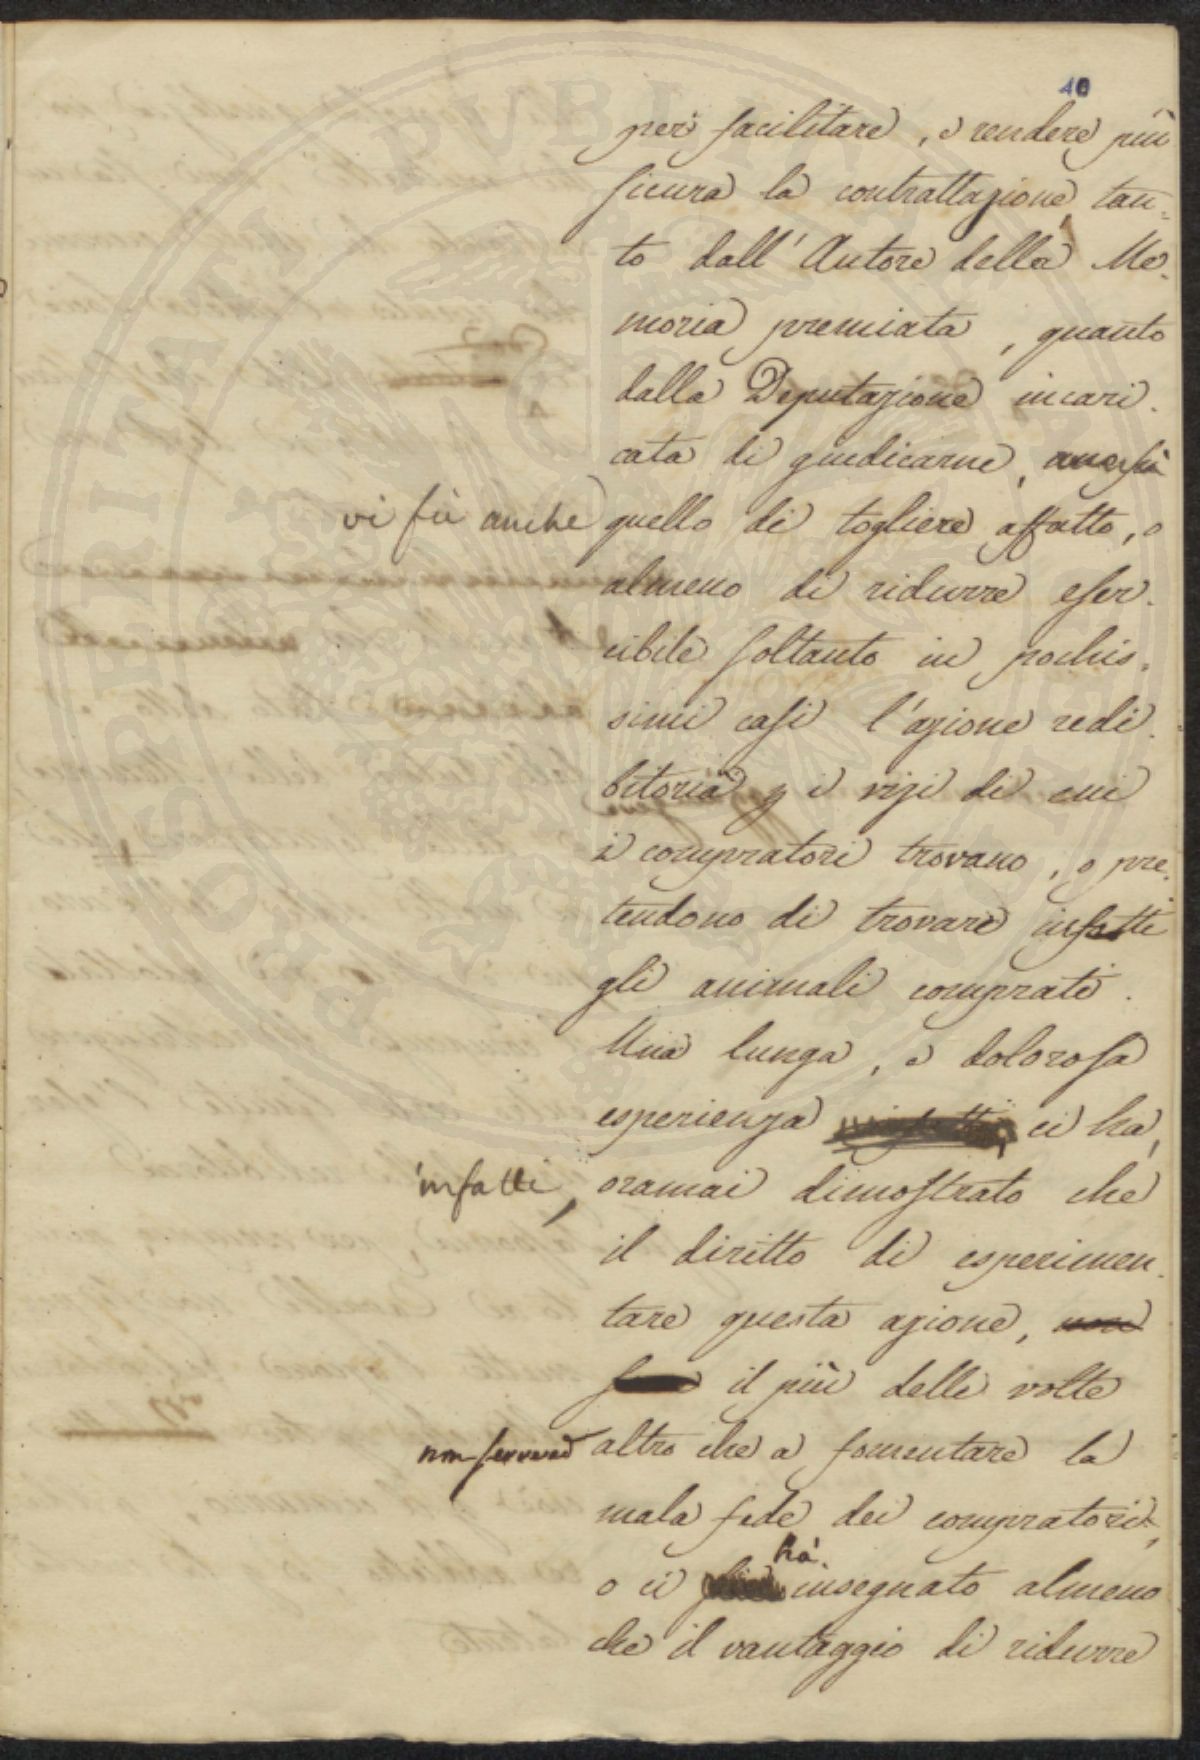 40
per facilitare, e rendere più
sicura la contrattazione tan-
to dall'Autore della Me-
moria premiata, quanto
dalla Deputazione incari-
cata di giudicarne,
vi fù anche quello di togliere affatto, o
almeno di ridurre eser-
cibile soltanto in pochis-
simi casi l'azione redi-
bitoria p i vizi di cui
i compratori trovano, o pre-
tendono di trovare infetti
gli animali comprati.
Una lunga, e dolorosa
esperienza ci ha,
infatti, oramai dimostrato che
il diritto di esperimen-
tare questa azione, non
il più delle volte
non serve ad altro che a fomentare la
mala fede dei compratori,
hà
o ci insegnato almeno
che il vantaggio di ridurre
PROSPERITATI PUBLICAE